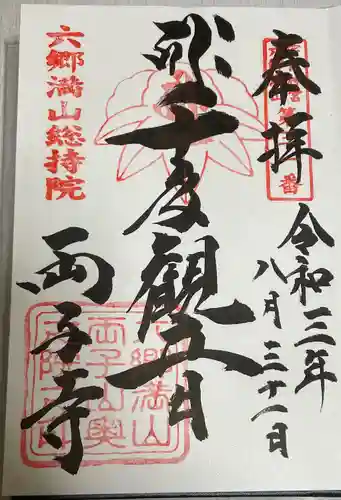 奉拝
令和三年
八月三十一日
観音
六郷満山総持院
両子寺
六郷満山
両子山
番